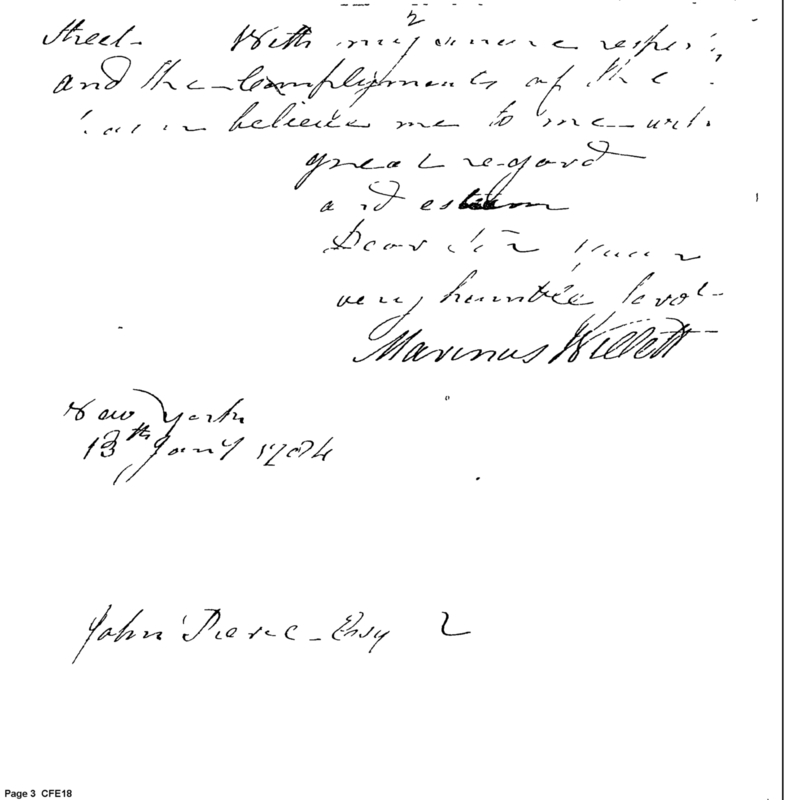 Street. With my sincere respects
and the Compliments of the
believe me to me with
great regard
and esteem
Dear Sir Your
very humble Servt
Marinus Willett
New York
13th Jany 1784
John Pierce Esqr
Page 3 CFE18